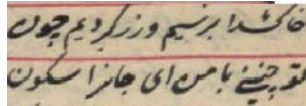 بر سیم و زر کردیم چون
تو چنینی با من ای جانرا سکون